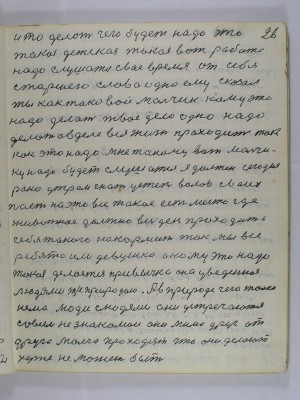 26
что делат чего будет надо это
такая детская такая вот работа
надо слушать свае время от себя
старшего слова одно ему сказал
ты как таковой молчик кому это
надо делат твое дело одно надо
делат вделе вся жизн проходит
как это надо мне такому вот малчи-
ку надо будет слушатся я должен сегодня
рано утрам волов своих
пасть на это все такое ест место где
животное должно выхден проходить
себя такого накормит так мы все
ребята или девушка а кому это надо
такая делается привычка она уведенная
людями природаю. А в природе чего только
нема люди слюдями они устречаются
совсем не знакомаи они мимо друг от
друга молча проходят что они делают
хуже не может быть